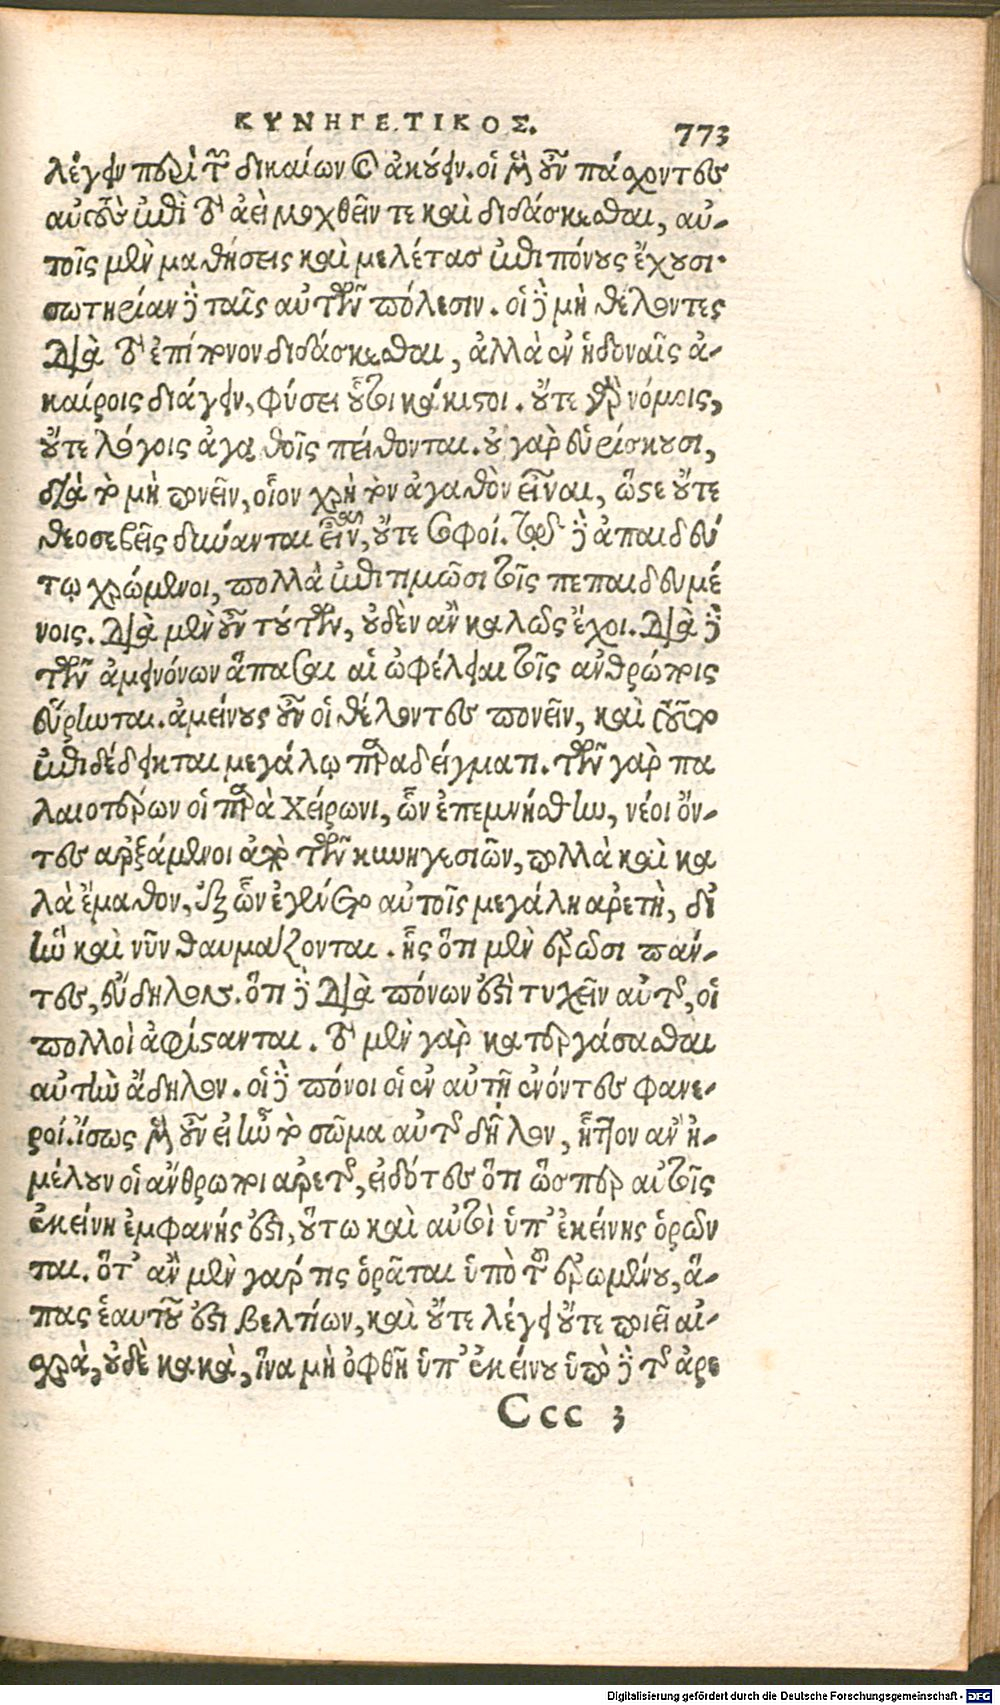 ΚΥΝΗΓΕΤΙΚΟΣ. 773
λέγειν περὶ τῶν δικαίων καὶ ἀκούειν. οἱ μὲν οὖν πάσχοντες
αὐτοὺς ἐπὶ τὸ ἀεὶ μοχθεῖν τε καὶ διδάσκεσθαι, αὐ-
τοῖς μὲν μαθήσεις καὶ μελέτας ἐπιπόνους ἔχουσι·
σωτηρίαν δὲ ταῖς αὑτῶν πόλεσιν. οἱ δὲ μὴ θέλοντες
διὰ τὸ ἐπίπονον διδάσκεσθαι, ἀλλὰ ἐν ἡδοναῖς ἀ-
καίροις διάγειν, φύσει οὗτοι κάκιστοι. οὔτε γὰρ νόμοις,
οὔτε λόγοις ἀγαθοῖς πείθονται. οὐ γὰρ εὑρίσκουσι,
διὰ τὸ μὴ πονεῖν, οἷον χρὴ τὸν ἀγαθὸν εἶναι, ὥστε οὔτε
θεοσεβεῖς δύνανται εἶναι, οὔτε σοφοί. τῷ δὲ ἀπαιδεύ
τῳ χρώμενοι, πολλὰ ἐπιτιμῶσι τοῖς πεπαιδευμέ
νοις. διὰ μὲν οὖν τούτων, οὐδὲν ἂν καλῶς ἔχοι. διὰ δὲ
τῶν ἀμεινόνων ἅπασαι αἱ ὠφέλειαι τοῖς ἀνθρώποις
εὕρηνται. ἀμείνους οὖν οἱ θέλοντες πονεῖν, καὶ τοῦτο
ἐπιδέδεικται μεγάλῳ παραδείγματι. τῶν γὰρ πα
λαιοτέρων οἱ παρὰ Χείρωνι, ὧν ἐπεμνήσθην, νέοι ὄν-
τες ἀρξάμενοι ἀπὸ τῶν κυνηγεσιῶν, πολλὰ καὶ κα
λὰ ἔμαθον, ἐξ ὧν ἐγένετο αὐτοῖς μεγάλη ἀρετὴ, δι'
ἣν καὶ νῦν θαυμάζονται. ἧς ὅτι μὲν ἐρῶσι πάν-
τες, εὔδηλον. ὅτι δὲ διὰ πόνων ἐστὶ τυχεῖν αὐτῆς, οἱ
πολλοὶ ἀφίστανται. τὸ μὲν γὰρ κατεργάσασθαι
αὐτὴν ἄδηλον. οἱ δὲ πόνοι οἱ ἐν αὐτῇ ἐνόντες φανε-
ροί. ἴσως μὲν οὖν εἰ ἦν τὸ σῶμα αὐτῆς δῆλον, ἧττον ἂν ἠ-
μέλουν οἱ ἄνθρωποι ἀρετῆς, εἰδότες ὅτι ὥσπερ αὐτοῖς
ἐκείνη ἐμφανής ἐστι, οὕτω καὶ αὐτοὶ ὑπ' ἐκείνης ὁρῶν
ται. ὅτ' ἂν μὲν γάρ τις ὁρᾶται ὑπὸ τοῦ ἐρωμένου, ἅ-
πας ἑαυτοῦ ἐστι βελτίων, καὶ οὔτε λέγει οὔτε ποιεῖ αἰ-
σχρὰ, οὐδὲ κακὰ, ἵνα μὴ ὀφθῇ ὑπ' ἐκείνου ὑπὸ δὲ τῆς ἀρε
Ccc 3
Digitalisierung gefördert durch die Deutsche Forschungsgemeinschaft - DFG